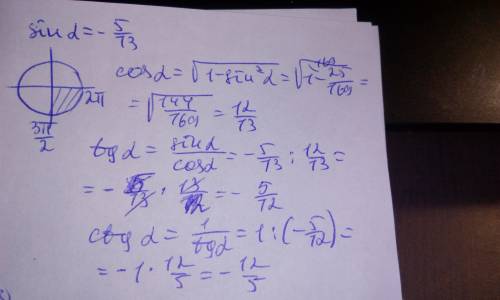 sin α = - 5/13
cos α = √(1-sin²α) = √(1 - 25/169) =
= √(144/169) = 12/13
2π
3π/2
tg α = sin α/cos α = - 5/13 : 12/13 =
= - 5/13 · 13/12 = - 5/12
ctg α = 1/tg α = 1 : (- 5/12) =
= -1 · 12/5 = - 12/5